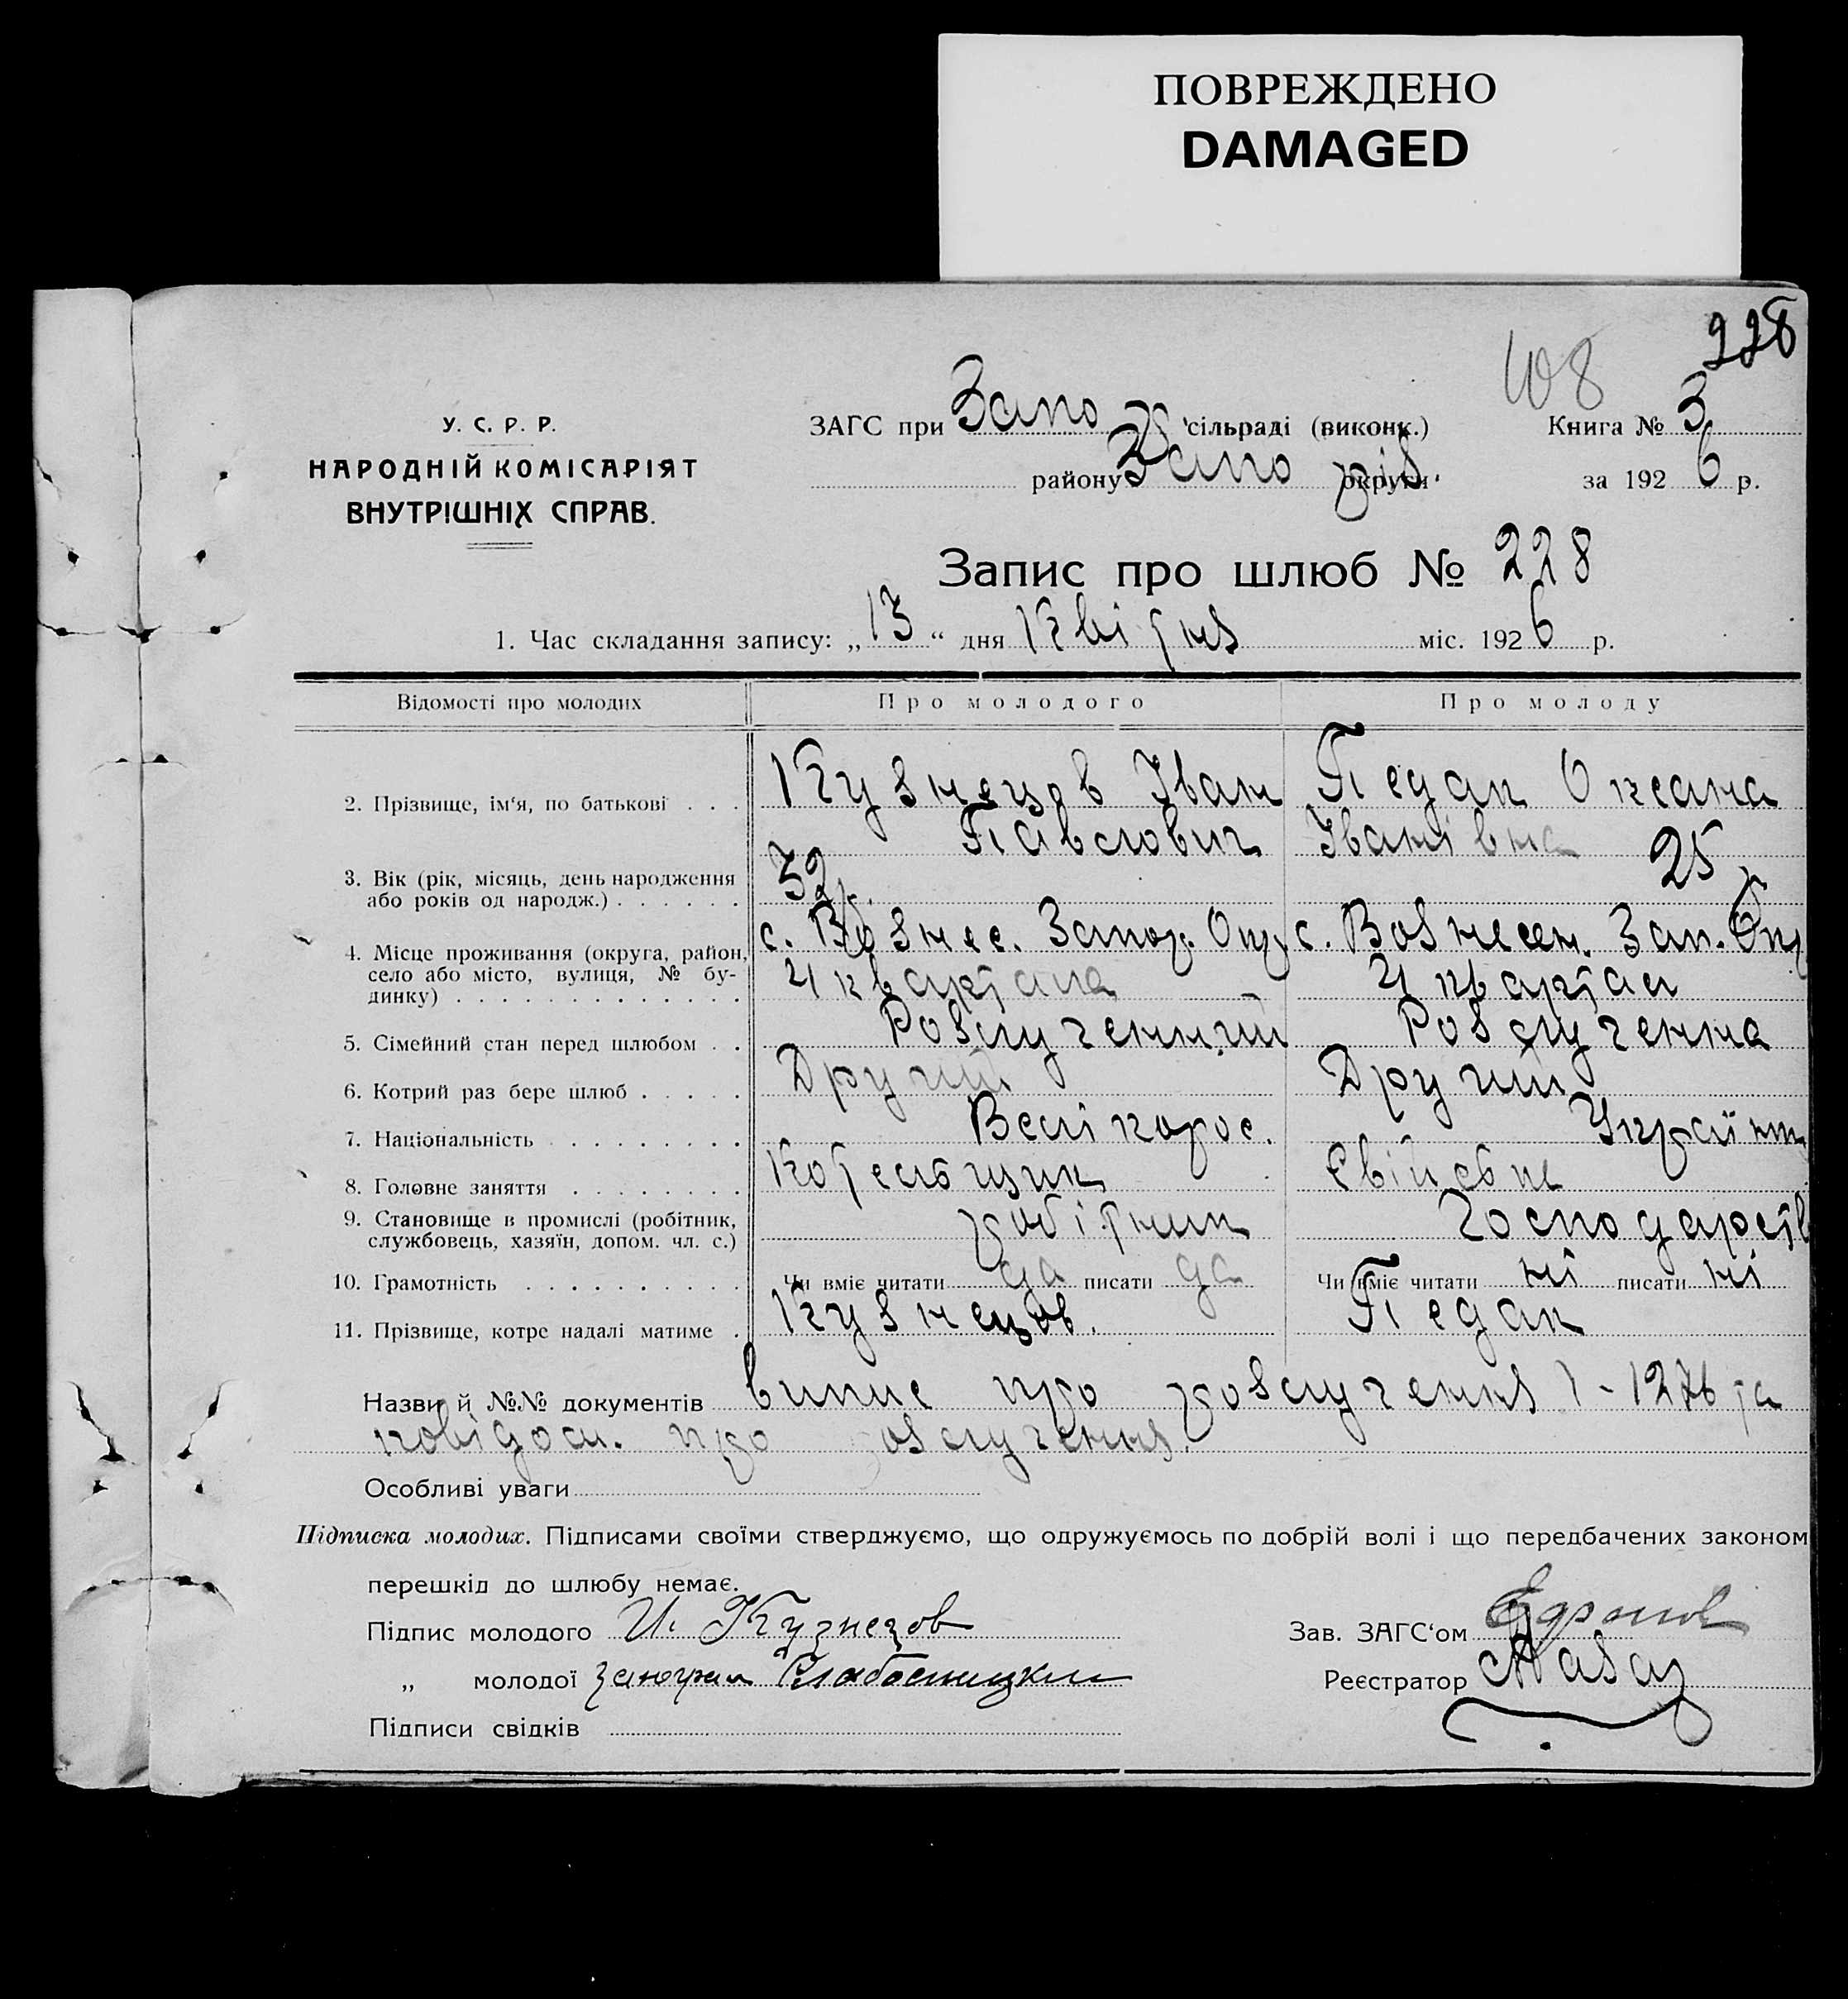 ПОВРЕЖДЕНО
DAMAGED
228
108
У. С. Р. Р.
НАРОДНІЙ КОМІСАРІЯТ
ВНУТРІШНІХ СПРАВ.
ЗАГС при Запо сільраді (виконк.) Книга № 3
району Запоріз. округи за 1926 р.
Запис про шлюб № 228
1. Час складання запису: „13“ дня Квітня міс. 1926 р.
Відомості про молодих Про молодого Про молоду
2. Прізвище, ім‘я, по батькові . . . Кузнецов Іван Педак Оксана
Павлович Іванівна
3. Вік (рік, місяць, день народження або років од народж.) . . . . . . 32р. 25
4. Місце проживання (округа, район, село або місто, вулиця, № будинку) . . . . . . . . . . . . . с. Вознес. Запор. Окр с. Вознесен. Зап. Окр
4 квартала 4 квартал
5. Сімейний стан перед шлюбом . . Розлученний Розлученна
6. Котрий раз бере шлюб . . . . . Другий Другий
7. Національність . . . . . . . . . Велікорос. Українк
8. Головне заняття . . . . . . . . Котельщик Свійське
9. Становище в промислі (робітник, службовець, хазяїн, допом. чл. с.) робітник Господарств
10. Грамотність . . . . . . . . . . Чи вміє читати да писати да Чи вміє читати ні писати ні
11. Прізвище, котре надалі матиме . Кузнецов. Педак
Назви й №№ документів випис про розлучення 1-1276 та
повідом. про розлучення.
Особливі уваги
Підписка молодих. Підписами своїми стверджуємо, що одружуємось по добрій волі і що передбачених законом
перешкід до шлюбу немає.
Підпис молодого И. Кузнецов Зав. ЗАГС‘ом
„ молодої Реєстратор
Підписи свідків